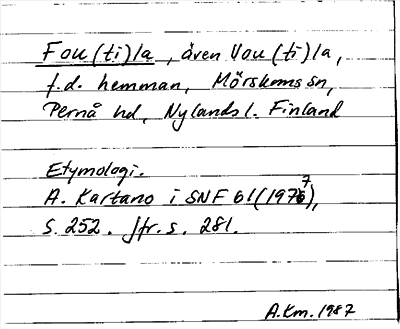 Fou(ti)la, även Vou(ti)la,
f.d. hemman, Mörskoms sn,
Pernå hd, Nylands l. Finland
Etymologi.
A. Kartano i SNF 61 (1977),
s. 252. Jfr. s. 281.
A.Km. 1987